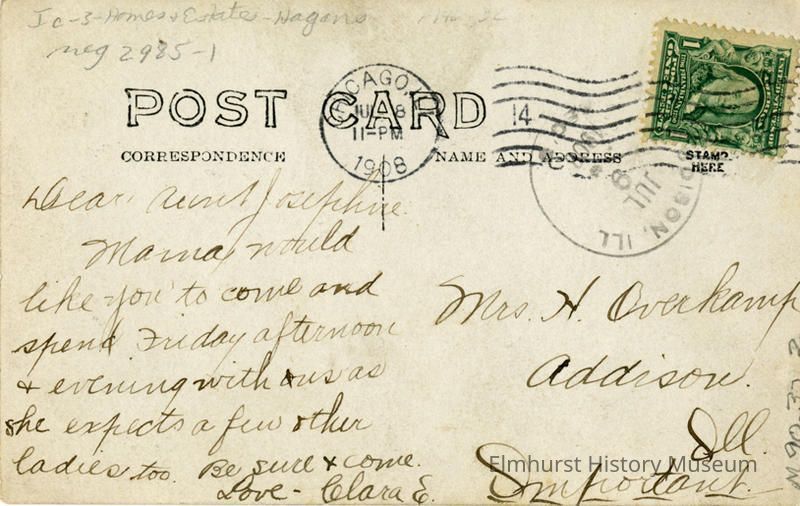 Ic-3-Homes & Estate-Hagans
neg 2985-1
POST CARD
CORRESPONDENCE
NAME AND ADDRESS
STAMP
HERE
CHICAGO,
JUL 8
11-PM
1908
14
ADDISON, ILL
JUL
9
1908
1
1
Dear Aunt Josephine.
Mama would
like you to come and
spend Friday afternoon
& evening with us as
she expects a few other
ladies too. Be sure & come.
Love - Clara E.
Mrs. H. Overkamp
Addison.
Ill.
Important.
Elmhurst History Museum
M 90.37.2